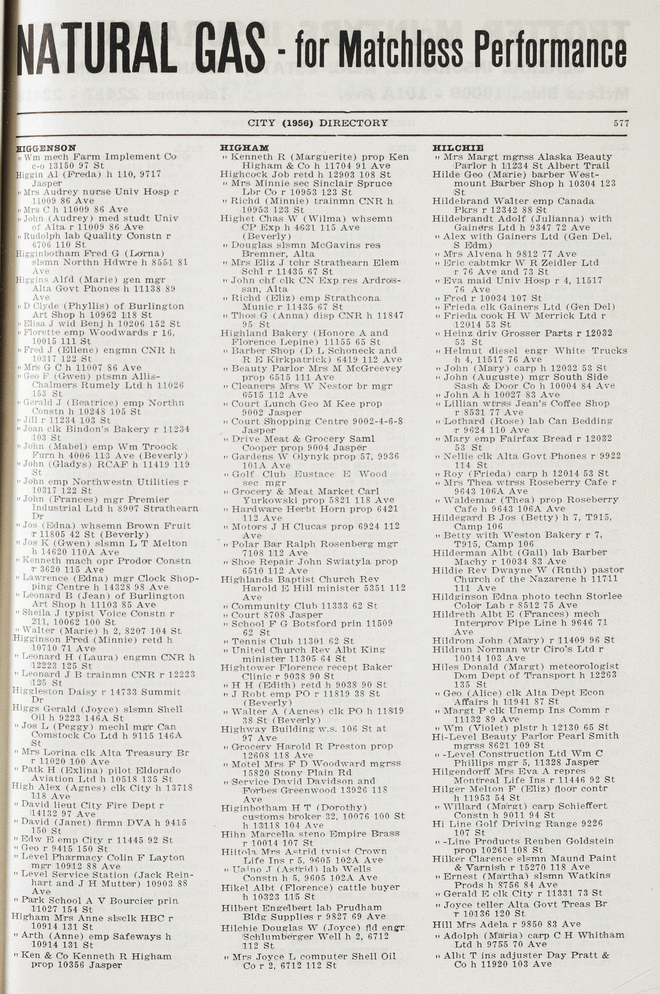 NATURAL GAS - for Matchless Performance
CITY (1956) DIRECTORY
577
HIGGENSON
" Wm mech Farm Implement Co
c-o 13150 97 St
Higgin Al (Freda) h 110, 9717
Jasper
" Mrs Audrey nurse Univ Hosp r
11009 86 Ave
" Mrs C h 11009 86 Ave
" John (Audrey) med studt Univ
of Alta r 11009 86 Ave
" Rudolph lab Quality Constn r
6706 110 St
Higginbotham Fred G (Lorna)
slsmn Northn Hdwre h 8551 81
Ave
Higgins Alfd (Marie) gen mgr
Alta Govt Phones h 11138 89
Ave
" D Clyde (Phyllis) of Burlington
Art Shop h 10962 118 St
" Elisa J wid Benj h 10206 152 St
" Florette emp Woodwards r 16,
10015 111 St
" Fred J (Ellene) engmn CNR h
10317 122 St
" Mrs G C h 11007 86 Ave
" Geo F (Gwen) ptsmn Allis-
Chalmers Rumely Ltd h 11026
153 St
" Gerald J (Beatrice) emp Northn
Constn h 10248 105 St
" Jill r 11234 103 St
" Joan clk Bindon's Bakery r 11234
103 St
" John (Mabel) emp Wm Troock
Furn h 4006 113 Ave (Beverly)
" John (Gladys) RCAF h 11419 119
St
" John emp Northwestn Utilities r
10317 122 St
" John (Frances) mgr Premier
Industrial Ltd h 8907 Strathearn
Dr
" Jos (Edna) whsemn Brown Fruit
r 11805 42 St (Beverly)
" Jos K (Gwen) slsmn L T Melton
h 14620 110A Ave
" Kenneth mach opr Prodor Constn
r 3620 115 Ave
" Lawrence (Edna) mgr Clock Shop-
ping Centre h 14328 98 Ave
" Leonard B (Jean) of Burlington
Art Shop h 11103 85 Ave
" Sheila J typist Voice Constn r
211, 10062 100 St
" Walter (Marie) h 2, 8207 104 St
Higginson Fred (Minnie) retd h
10710 71 Ave
" Leonard H (Laura) engmn CNR h
12223 125 St
" Leonard J B trainmn CNR r 12223
125 St
Higgleston Daisy r 14733 Summit
Dr
Higgs Gerald (Joyce) slsmn Shell
Oil h 9223 146A St
" Jos L (Peggy) mechl mgr Can
Comstock Co Ltd h 9115 146A
St
" Mrs Lorina clk Alta Treasury Br
r 11020 100 Ave
" Patk H (Exlina) pilot Eldorado
Aviation Ltd h 10518 135 St
High Alex (Agnes) clk City h 13718
118 Ave
" David lieut City Fire Dept r
14132 97 Ave
" David (Janet) firmn DVA h 9415
150 St
" Edw E emp City r 11445 92 St
" Geo r 9415 150 St
" Level Pharmacy Colin F Layton
mgr 10912 88 Ave
" Level Service Station (Jack Rein-
hart and J H Mutter) 10903 88
Ave
" Park School A V Bourcier prin
11027 154 St
Higham Mrs Anne slsclk HBC r
10914 131 St
" Arth (Anne) emp Safeways h
10914 131 St
" Ken & Co Kenneth R Higham
prop 10356 Jasper
HIGHAM
" Kenneth R (Marguerite) prop Ken
Higham & Co h 11704 91 Ave
Highcock Job retd h 12903 108 St
" Mrs Minnie sec Sinclair Spruce
Lbr Co r 10953 123 St
" Richd (Minnie) trainmn CNR h
10953 123 St
Highet Chas W (Wilma) whsemn
CP Exp h 4631 115 Ave
(Beverly)
" Douglas slsmn McGavins res
Bremner, Alta
" Mrs Eliz J tchr Strathearn Elem
Schl r 11435 67 St
" John chf clk CN Exp res Ardros-
san, Alta
" Richd (Eliz) emp Strathcona
Munic r 11435 67 St
" Thos G (Anna) disp CNR h 11847
95 St
Highland Bakery (Honore A and
Florence Lepine) 11155 65 St
" Barber Shop (D L Schoneck and
R E Kirkpatrick) 6419 112 Ave
" Beauty Parlor Mrs M McGreevey
prop 6515 111 Ave
" Cleaners Mrs W Nestor br mgr
6515 112 Ave
" Court Lunch Geo M Kee prop
9002 Jasper
" Court Shopping Centre 9002-4-6-8
Jasper
" Drive Meat & Grocery Saml
Cooper prop 9004 Jasper
" Gardens W Olynyk prop 57, 9936
101A Ave
" Golf Club Eustace E Wood
sec mgr
" Grocery & Meat Market Carl
Yurkowski prop 5821 118 Ave
" Hardware Herbt Horn prop 6421
112 Ave
" Motors J H Clucas prop 6924 112
Ave
" Polar Bar Ralph Rosenberg mgr
7108 112 Ave
" Shoe Repair John Swiatyla prop
6510 112 Ave
Highlands Baptist Church Rev
Harold E Hill minister 5351 112
Ave
" Community Club 11333 62 St
" Court 8708 Jasper
" School F G Botsford prin 11509
62 St
" Tennis Club 11301 62 St
" United Church Rev Albt King
minister 11305 64 St
Hightower Florence recept Baker
Clinic r 9038 90 St
" H H (Edith) retd h 9038 90 St
" J Robt emp PO r 11819 38 St
(Beverly)
" Walter A (Agnes) clk PO h 11819
38 St (Beverly)
Highway Building w.s. 106 St at
97 Ave
" Grocery Harold R Preston prop
12608 118 Ave
" Motel Mrs F D Woodward mgrss
15820 Stony Plain Rd
" Service David Davidson and
Forbes Greenwood 13926 118
Ave
Higinbotham H T (Dorothy)
customs broker 32, 10076 100 St
h 13118 104 Ave
Hihn Marcella steno Empire Brass
r 10014 107 St
Hiitola Mrs Astrid typist Crown
Life Ins r 5, 9605 102A Ave
" Uaino J (Astrid) lab Wells
Constn h 5, 9605 102A Ave
Hikel Albt (Florence) cattle buyer
h 10323 115 St
Hilbert Engelbert lab Prudham
Bldg Supplies r 9827 69 Ave
Hilchie Douglas W (Joyce) fld engr
Schlumberger Well h 2, 6712
112 St
" Mrs Joyce L computer Shell Oil
Co r 2, 6712 112 St
HILCHIE
" Mrs Margt mgrss Alaska Beauty
Parlor h 11234 St Albert Trail
Hilde Geo (Marie) barber West-
mount Barber Shop h 10304 123
St
Hildebrand Walter emp Canada
Pkrs r 12342 88 St
Hildebrandt Adolf (Julianna) with
Gainers Ltd h 9347 72 Ave
" Alex with Gainers Ltd (Gen Del,
S Edm)
" Mrs Alvena h 9812 77 Ave
" Eric cabtmkr W R Zeidler Ltd
r 76 Ave and 73 St
" Eva maid Univ Hosp r 4, 11517
76 Ave
" Fred r 10034 107 St
" Frieda clk Gainers Ltd (Gen Del)
" Frieda cook H W Merrick Ltd r
12014 53 St
" Heinz driv Grosser Parts r 12032
53 St
" Helmut diesel engr White Trucks
h 4, 11517 76 Ave
" John (Mary) carp h 12032 53 St
" John (Auguste) mgr South Side
Sash & Door Co h 10004 84 Ave
" John A h 10027 83 Ave
" Lillian wtrss Jean's Coffee Shop
r 8531 77 Ave
" Lothard (Rose) lab Can Bedding
r 9624 110 Ave
" Mary emp Fairfax Bread r 12032
53 St
" Nellie clk Alta Govt Phones r 9922
114 St
" Roy (Frieda) carp h 12014 53 St
" Mrs Thea wtrss Roseberry Cafe r
9643 106A Ave
" Waldemar (Thea) prop Roseberry
Cafe h 9643 106A Ave
Hildegard B Jos (Betty) h 7, T915,
Camp 106
" Betty with Weston Bakery r 7,
T915, Camp 106
Hilderman Albt (Gail) lab Barber
Machy r 10034 83 Ave
Hildie Rev Dwayne W (Ruth) pastor
Church of the Nazarene h 11711
111 Ave
Hildginson Edna photo techn Storlee
Color Lab r 8512 75 Ave
Hildreth Albt E (Frances) mech
Interprov Pipe Line h 9646 71
Ave
Hildrom John (Mary) r 11409 96 St
Hildrun Norman wtr Ciro's Ltd r
10014 103 Ave
Hiles Donald (Margt) meteorologist
Dom Dept of Transport h 12263
135 St
" Geo (Alice) clk Alta Dept Econ
Affairs h 11941 87 St
" Margt P clk Unemp Ins Comm r
11132 89 Ave
" Wm (Violet) plstr h 12130 65 St
Hi-Level Beauty Parlor Pearl Smith
mgrss 8621 109 St
" -Level Construction Ltd Wm C
Phillips mgr 5, 11328 Jasper
Hilgendorff Mrs Eva A repres
Montreal Life Ins r 11446 92 St
Hilger Melton F (Eliz) floor contr
h 11953 54 St
" Willard (Margt) carp Schieffert
Constn h 9011 94 St
Hi Line Golf Driving Range 9226
107 St
" -Line Products Reuben Goldstein
prop 10261 108 St
Hilker Clarence slsmn Maund Paint
& Varnish r 15270 118 Ave
" Ernest (Martha) slsmn Watkins
Prods h 8756 84 Ave
" Gerald E clk City r 11331 73 St
" Joyce teller Alta Govt Treas Br
r 10136 120 St
Hill Mrs Adela r 9850 83 Ave
" Adolph (Maria) carp C H Whitham
Ltd h 9755 70 Ave
" Albt T ins adjuster Day Pratt &
Co h 11920 103 Ave